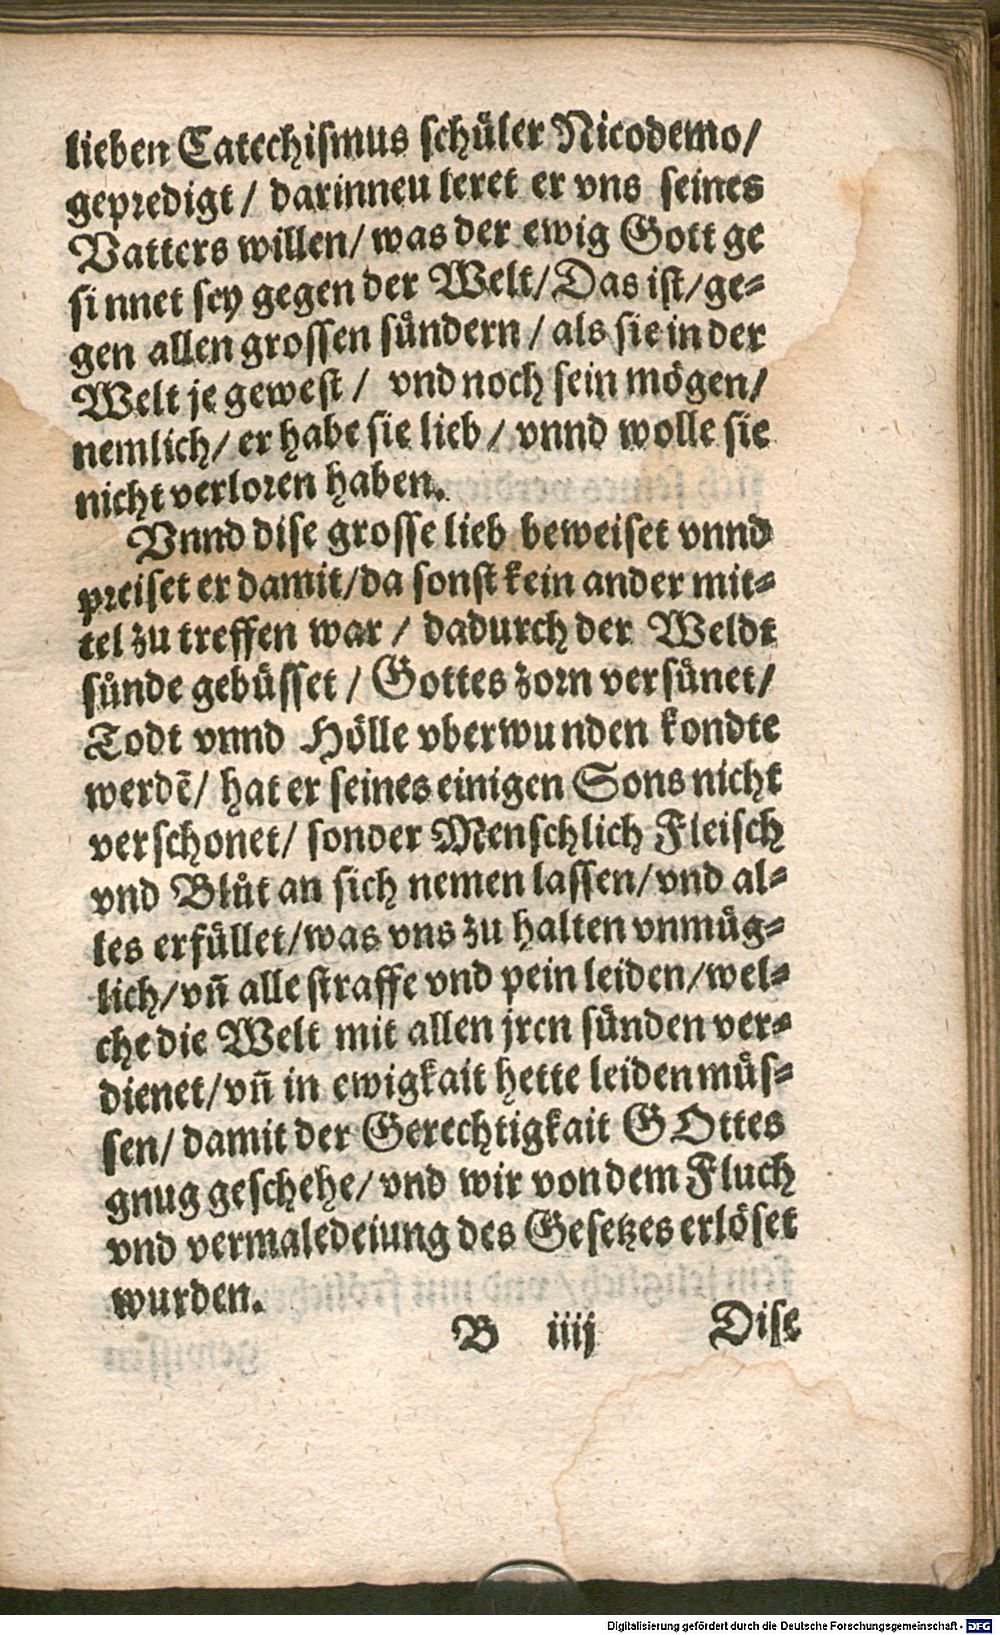 lieben Catechismus schuͤler Nicodemo/
gepredigt / darinneu leret er vns seines
Vatters willen/ was der ewig Gott ge
sinnet sey gegen der Welt/ Das ist/ ge-
gen allen grossen suͤndern / als sie in der
Welt je gewest / vnd noch sein moͤgen/
nemlich/ er habe sie lieb / vnnd wolle sie
nicht verloren haben.
Vnnd dise grosse lieb beweiset vnnd
preiset er damit/ da sonst kein ander mit-
tel zu treffen war / dadurch der Weldt
suͤnde gebuͤsset / Gottes zorn versuͤnet/
Todt vnnd Hoͤlle vberwunden kondte
werdē/ hat er seines einigen Sons nicht
verschonet/ sonder Menschlich Fleisch
vnd Bluͦt an sich nemen lassen/ vnd al-
les erfuͤllet/ was vns zu halten vnmuͤg-
lich/ vn̄ alle straffe vnd pein leiden/ wel-
che die Welt mit allen jren suͤnden ver-
dienet/ vn̄ in ewigkait hette leiden muͤs-
sen/ damit der Gerechtigkait GOttes
gnug geschehe/ vnd wir von dem Fluch
vnd vermaledeiung des Gesetzes erloͤset
wurden.
B iiij Dise
Digitalisierung gefördert durch die Deutsche Forschungsgemeinschaft - DFG